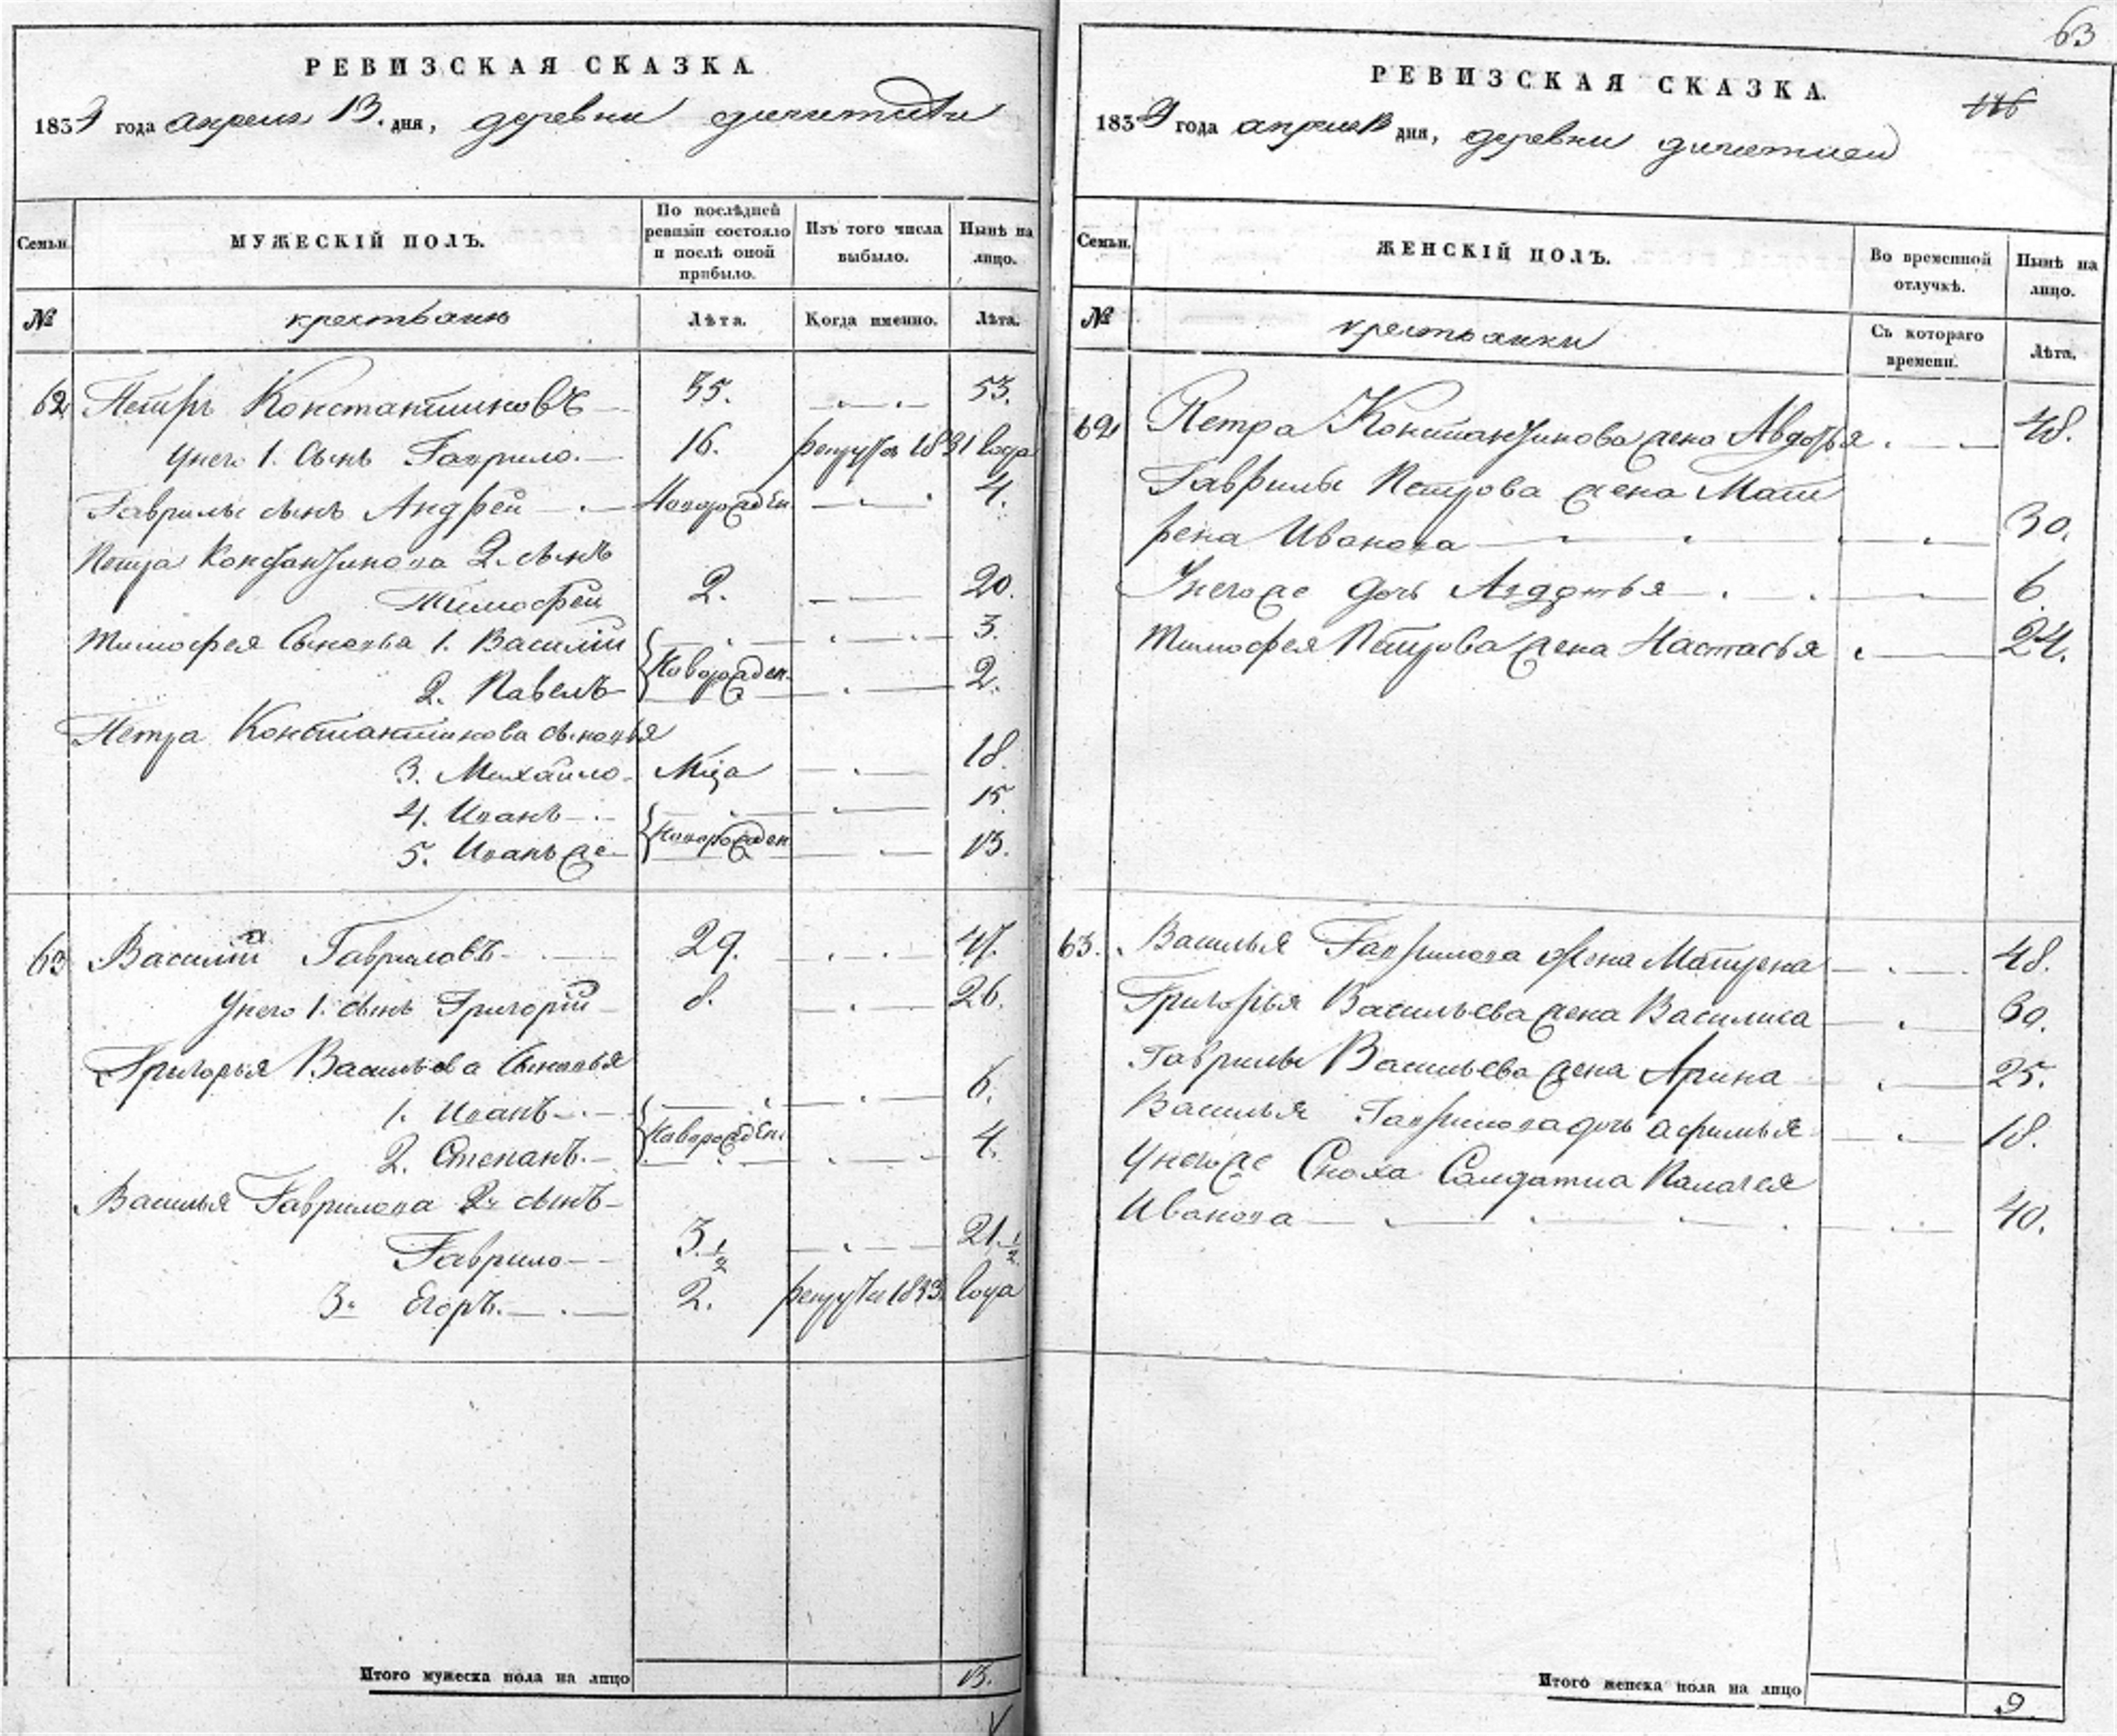 РЕВИЗСКАЯ СКАЗКА
1834 года апреля 13. дня, деревни
Семьи. МУЖЕСКІЙ ПОЛЪ. По послѣдней ревизіи состояло и послѣ оной прибыло. Изъ того числа выбыло. Нынѣ на лицо.
№ крестьяне Лѣта. Когда именно. Лѣта.
62 Петръ Константиновъ 35. 53.
у него 1. сынъ Гаврило. 16. рекрутъ 1831 года
Гаврилы сынъ Андрей новорожден 4.
Петра Константинова 2. сынъ
Тимофей 2. 20.
Тимофея сыновья 1. Василий 3.
2. Павелъ новорожден. 2.
Петра Константинова сыновья
3. Михайло Мца 18.
4. Иванъ 15.
5. Иванъ же новорожден 13.
63 Василий Гавриловъ 29. 47.
у него 1. сынъ Григорий 8. 26.
Григорья Васильева сыновья
1. Иванъ 6.
2. Степанъ новорожден. 4.
Василья Гаврилова 2й сынъ
Гаврило 3.½ 21.½
3й Егоръ. 2. рекрутъ 1833 года
Итого мужеска пола на лицо 13.
63
РЕВИЗСКАЯ СКАЗКА.
116
1834 года апреля 13 дня, деревни
Семьи. ЖЕНСКІЙ ПОЛЪ. Во временной отлучкѣ. Нынѣ на лицо.
№ крестьянки Съ котораго времени. Лѣта.
62 Петра Константинова жена Авдотья 48.
Гаврилы Петрова жена Мат
рена Иванова 30.
У него же дочь Авдотья 6.
Тимофея Петрова жена Настасья 24.
63. Василья Гаврилова жена Матрена 48.
Григорья Васильева жена Василиса 30.
Гаврилы Васильева жена Арина 25.
Василья Гаврилова дочь Афимья 18.
У него же сноха Солдатка Палагея
Иванова 40.
Итого женска пола на лицо 9